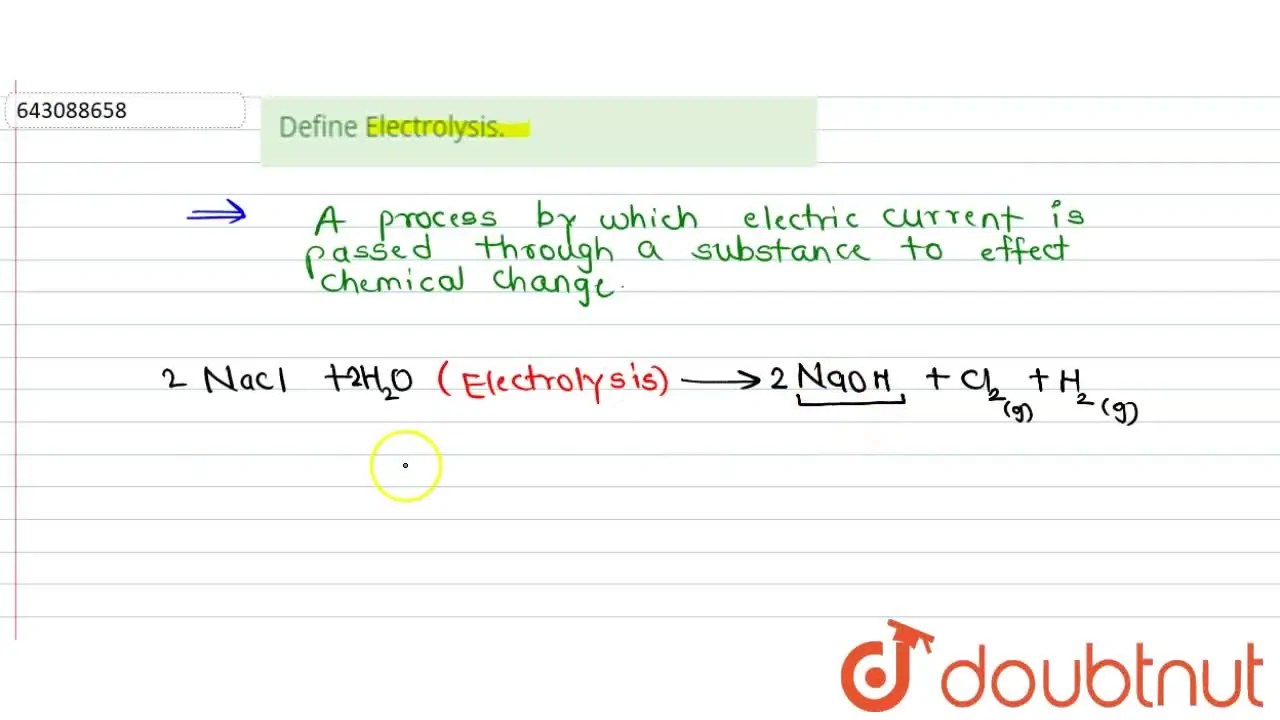 643088658
Define Electrolysis.
⇒ A process by which electric current is
passed through a substance to effect
chemical change.
2 NaCl +2H₂O (Electrolysis) → 2 NaOH + Cl₂(g) + H₂(g)
doubtnut